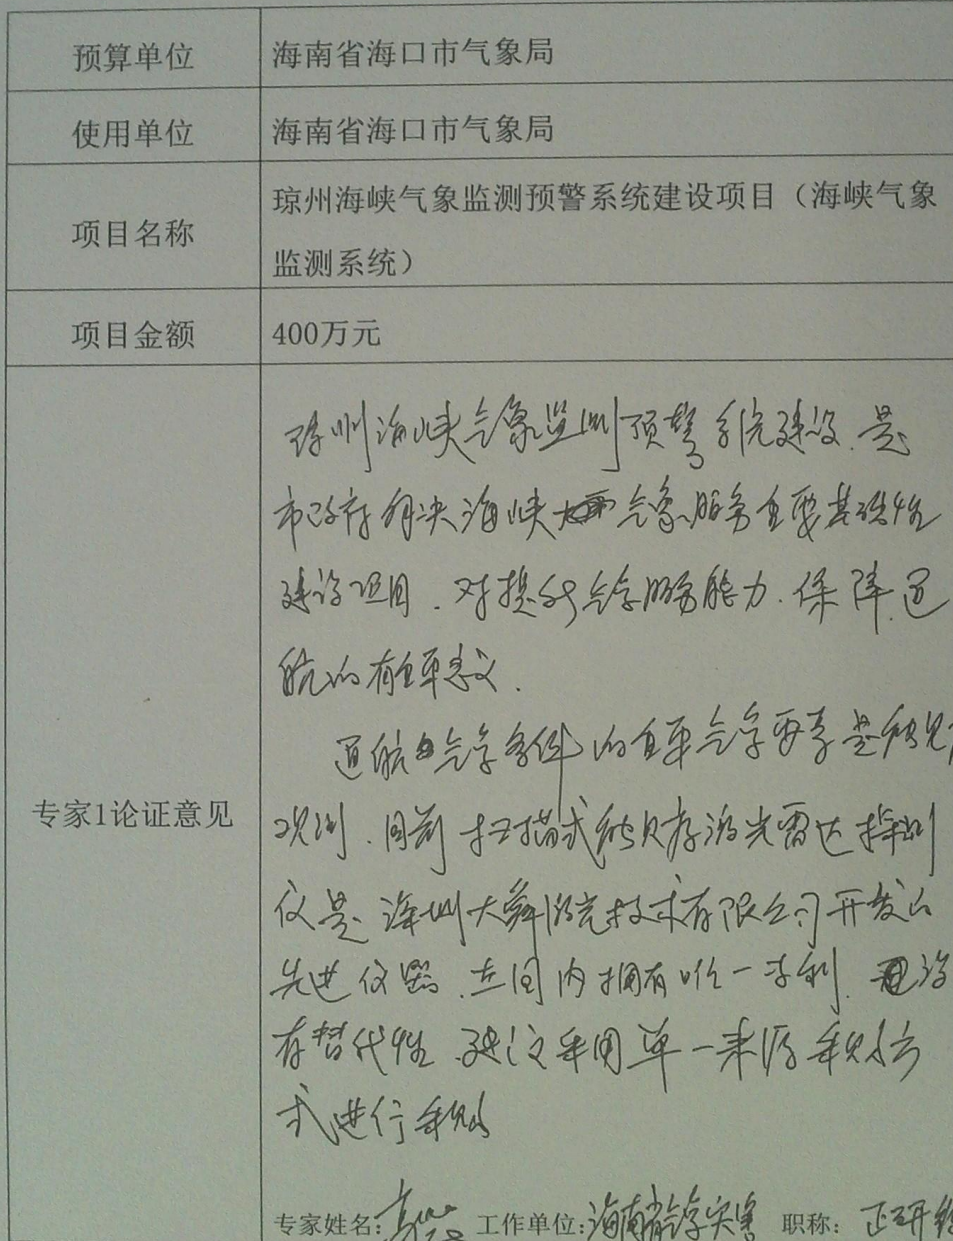 预算单位
海南省海口市气象局
使用单位
海南省海口市气象局
项目名称
琼州海峡气象监测预警系统建设项目（海峡气象
监测系统）
项目金额
400万元
专家1论证意见
琼州海峡气象监测预警系统建设.是
市政府解决海峡气象服务重要基础性
建设项目.对提升气象服务能力.保障通
航的有重要意义.
通航气象条件的重要气象要素是能见度
观测.目前扫描式能见度激光雷达探测
仪是深圳大舜激光技术有限公司开发的
先进仪器.在国内拥有唯一专利.没
有替代性.建议采用单一来源采购方
式进行采购
专家姓名: 工作单位:海南省气象灾害 职称: 正研级